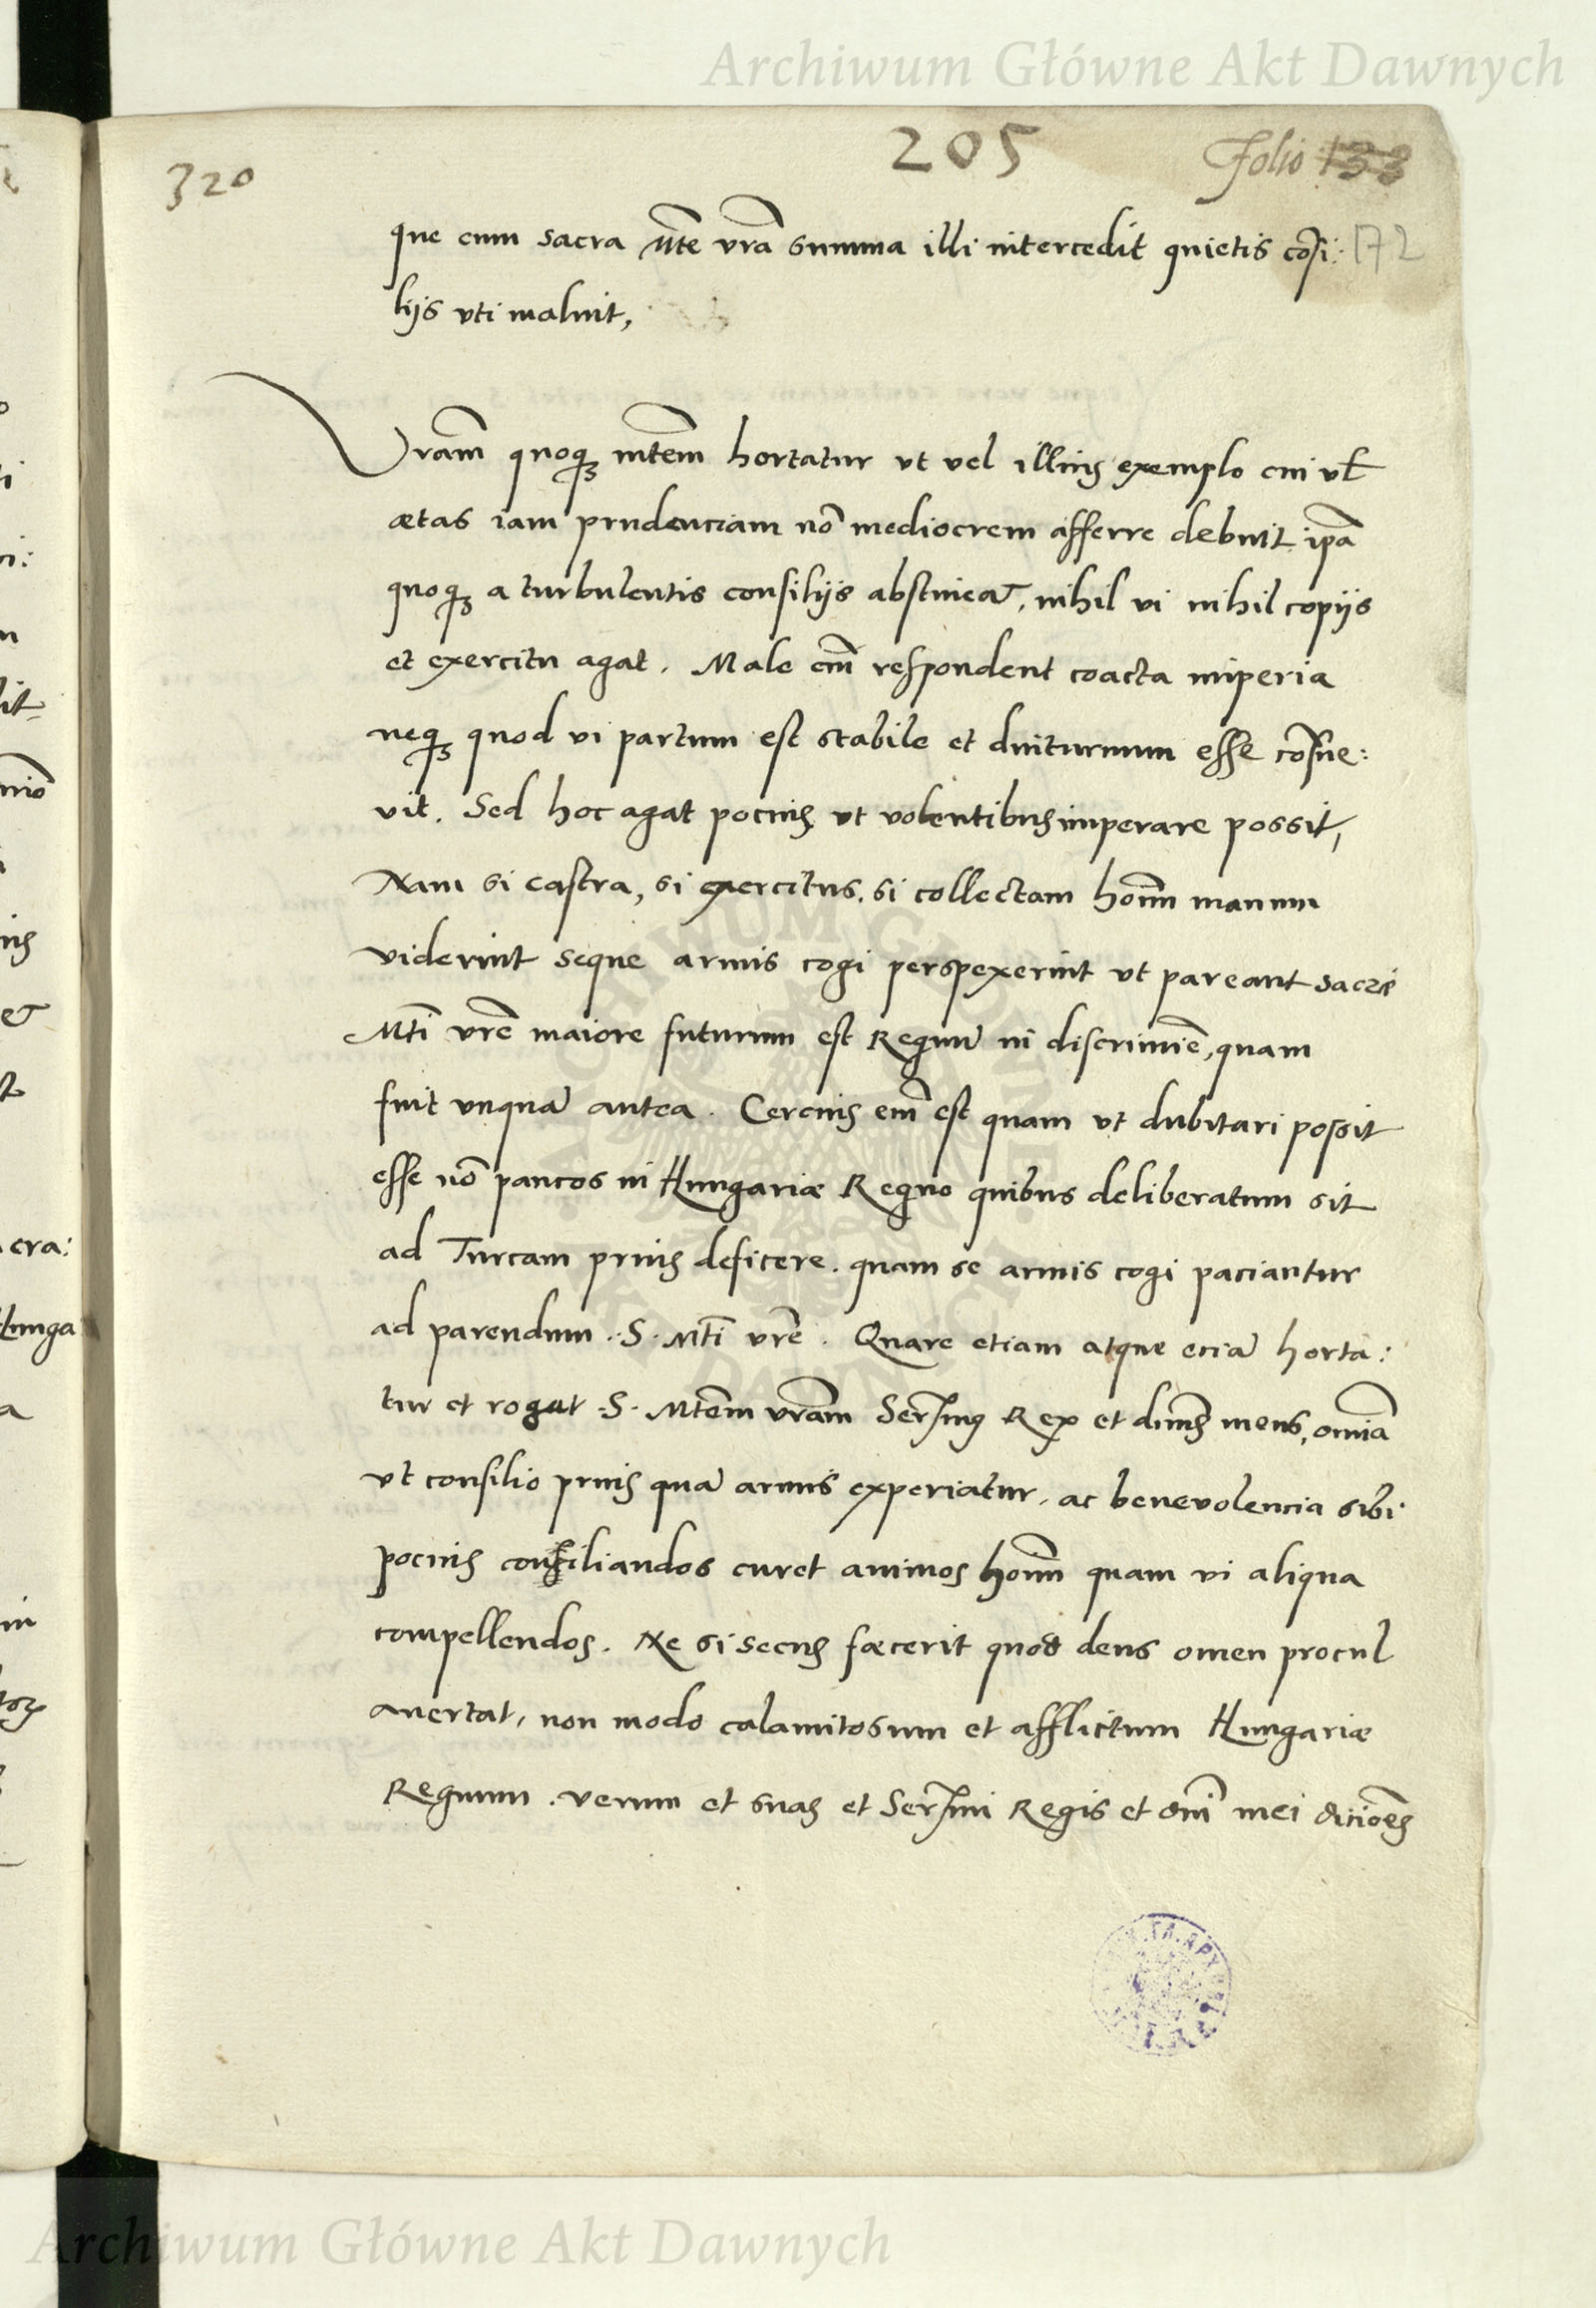 Archiwum Główne Akt Dawnych
205
Folio 133
320
que cum sacra Mte vrã summa illi intercedit quietis cõsi:
172
lijs vti maluit,
Vram̃ quoq3 mtem̃ hortatur ut vel illius exemplo cui vł
ætas iam prudenciam nõ mediocrem afferre debuit ipã
quoq3 a turbulentis consilijs abstineat, nihil vi nihil copijs
et exercitu agat. Male em̃ respondent coacta imperia
neq3 quod vi partum est stabile et diuturnum esse cõsue:
vit. Sed hoc agat pocius ut volentibus imperare possit,
Nam si castra, si exercitus, si collectam hom̃ manum
viderint seque armis cogi perspexerint ut pareant sacræ
Mti vrẽ maiore futurum est Regnũ in discrimiẽ, quam
fuit vnquã antea. Cercius em̃ est quam ut dubitari possit
esse nõ paucos in Hungariæ Regno quibus deliberatum sit
ad Turcam prius deficere. quam se armis cogi paciantur
ad parendum .S. Mti vrẽ. Quare etiam atque eciã horta:
tur et rogat .S. Mtem̃ vram̃ Serſmus Rex et dm̃s meus, omiã
ut consilio prius quã armis experiatur, ac benevolencia sibi
pocius consiliandos curet animos hom̃ quam vi aliqua
compellendos. Ne si secus fæcerit quod deus omen procul
avertat, non modo calamitosum et afflictum Hungariæ
Regnum. verum et suas et Serſmi Regis et dnĩ mei diciões
Archiwum Główne Akt Dawnych